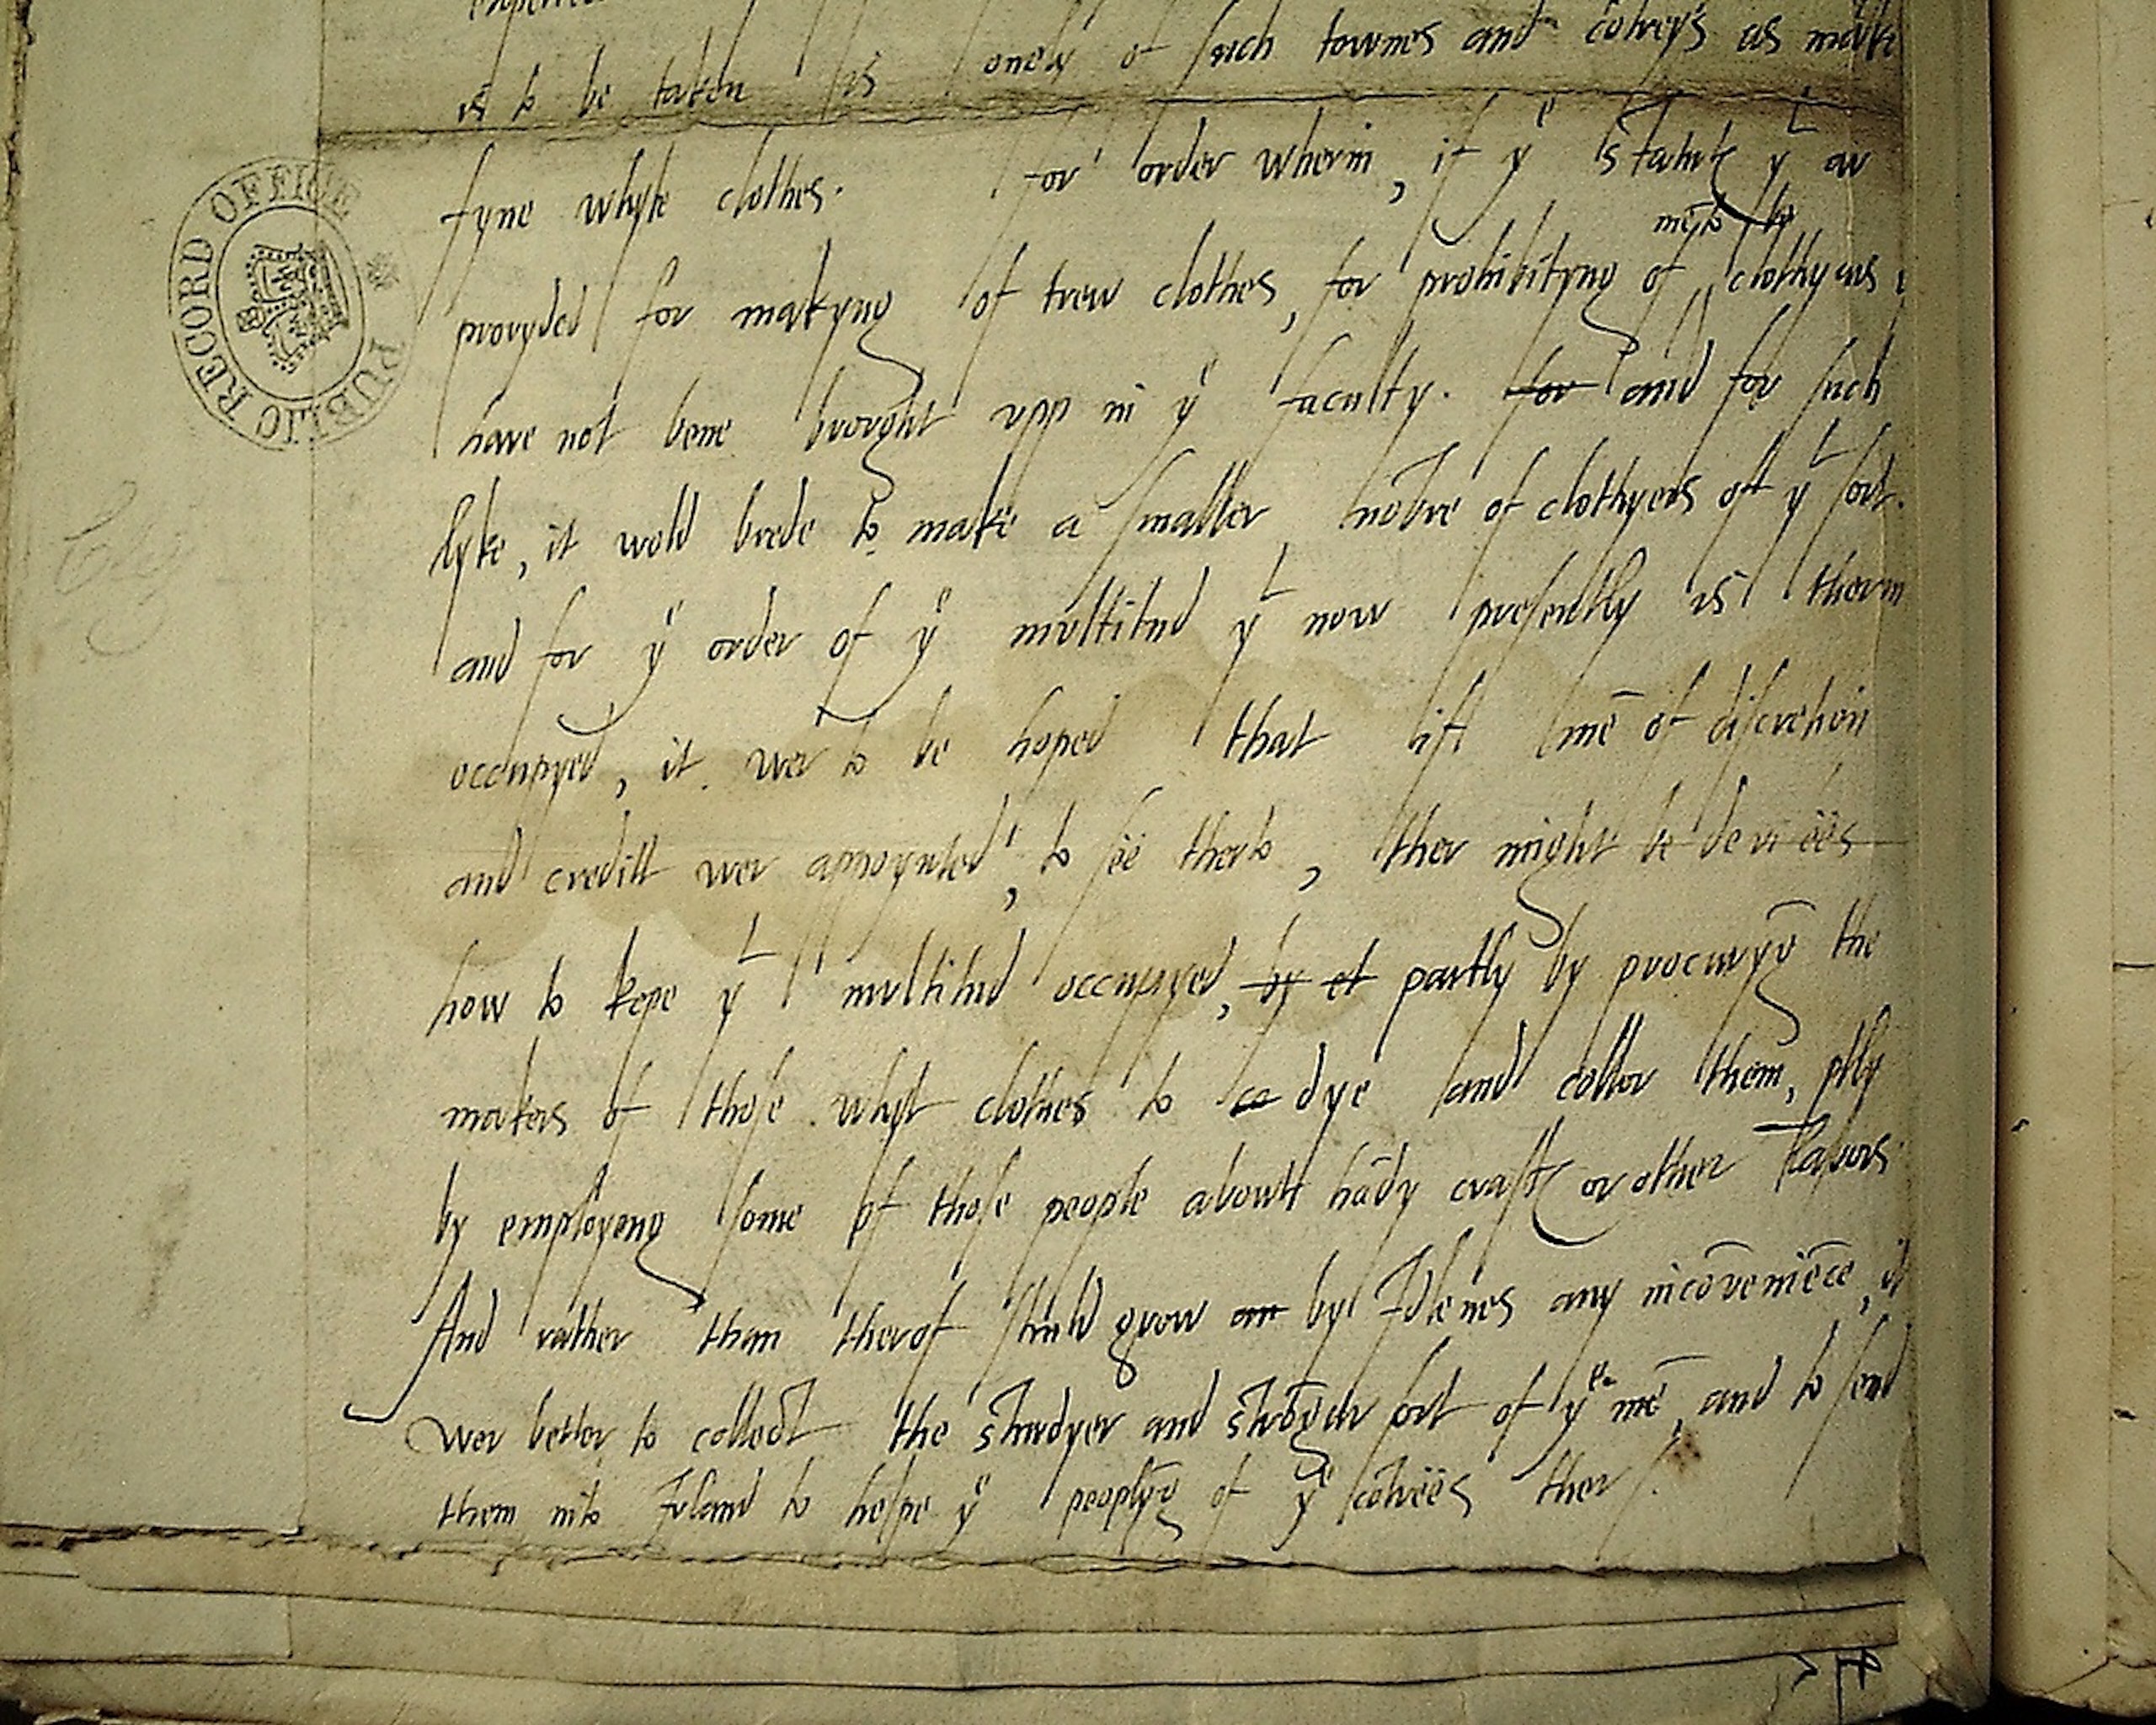 is to be taken is onely of such townes and cōtreys as make
fyne whyte clothes. for order wherin, if yᵉ statut yᵗ ar
mē to be
provyded for makyng of trew clothes, for prohibityng of clothyers
have not bene brought upp in yᵉ faculty. for and for such
lyke, it wold brede to make a smaller nōbre of clothyers of yᵗ sort.
and for yᵉ order of yᵉ multitud yᵗ now presently is therin
occupyed, it wer to be hoped that if mē of discretion
and creditt wer appoynted, to see therto, ther might be devisees
how to kepe yᵗ multitud occupyed, by et partly by procuryḡ the
makers of those whyt clothes to co dye and collor them, ptly
by employeng some of those people about hādy craftes or other labors.
And rather than therof shuld grow an by Idlenes any incōveniēce, it
wer better to collect the sturdyer and strōger sort of yᵉ mē, and to send
them into Irland to helpe yᵉ peoplyḡ of yᵉ cōtrees ther.
PUBLIC RECORD OFFICE